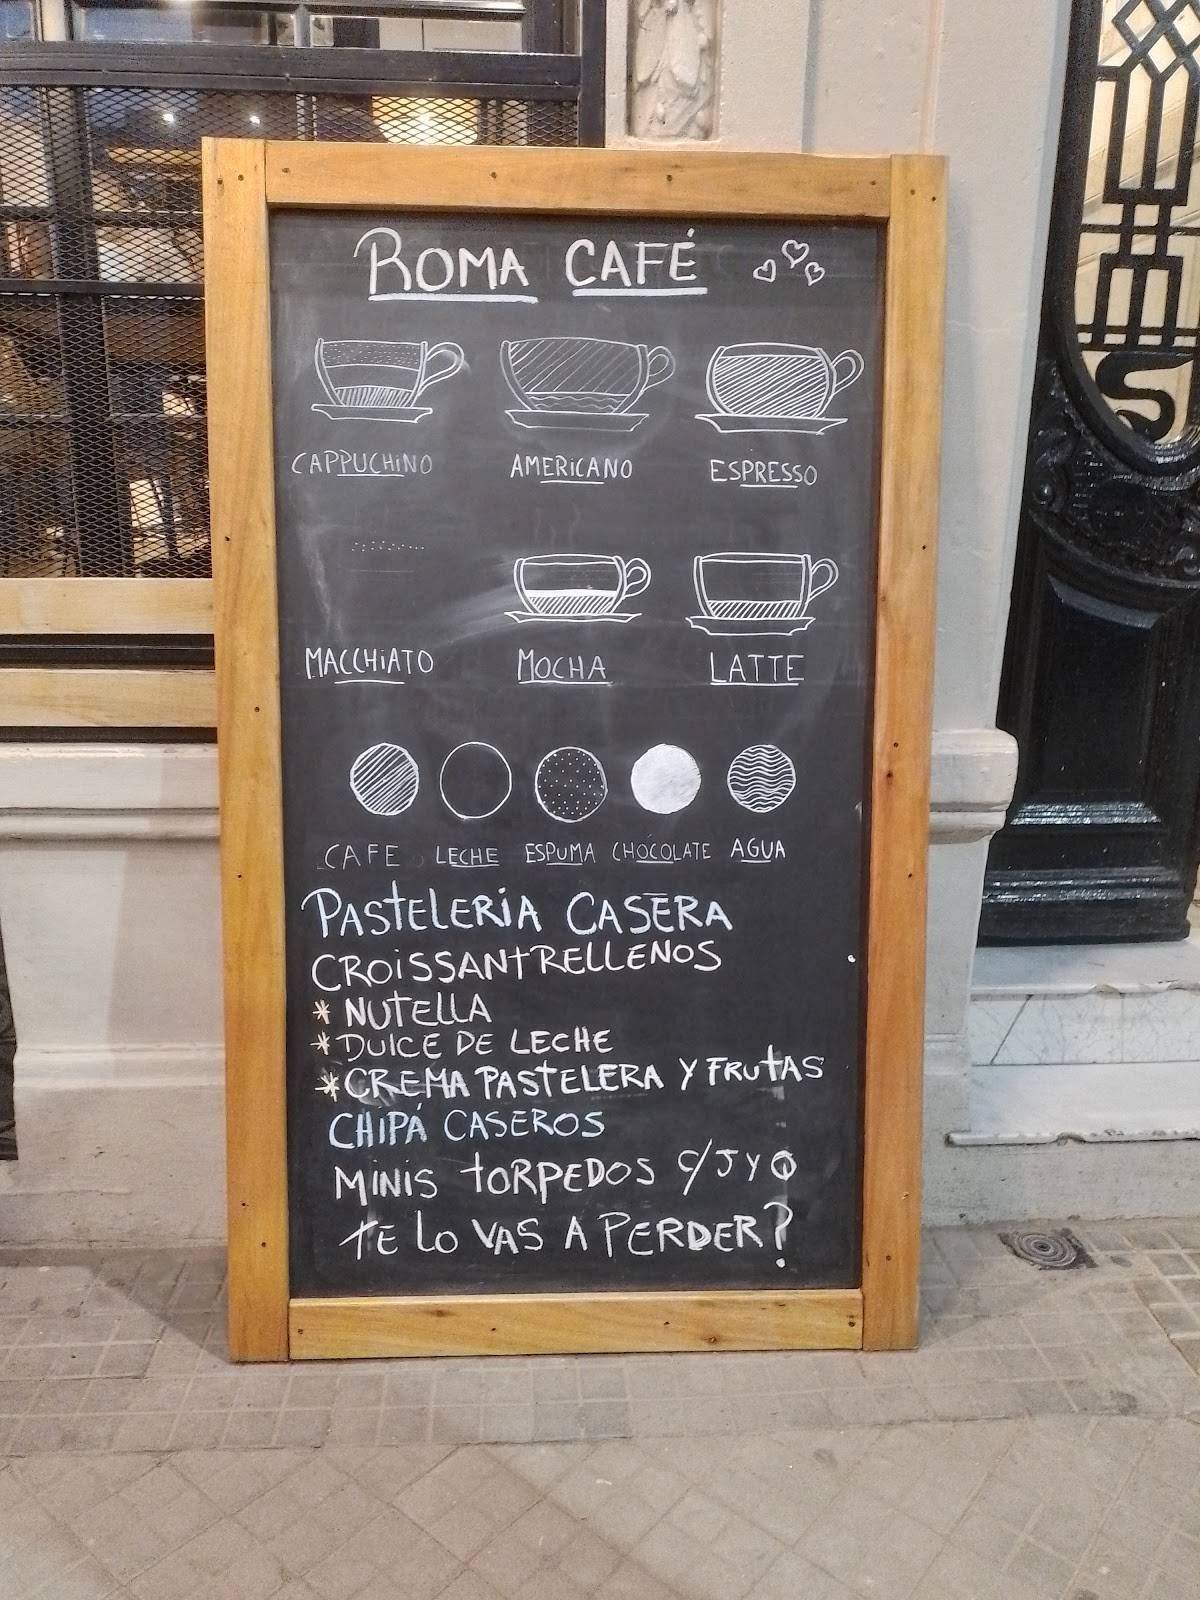 ROMA CAFÉ
CAPPUCHiNO AMERiCANO ESPRESSO
MACCHiATO MOCHA LATTE
CAFE LECHE ESPUMA CHOCOLATE AGUA
PASTELERiA CASERA
CROiSSANT RELLENOS
* NUTELLA
* DULCE DE LECHE
* CREMA PASTELERA Y FRUTAS
CHIPÁ CASEROS
MINIS TORPEDOS C/J Y Q
TE LO VAS A PERDER?